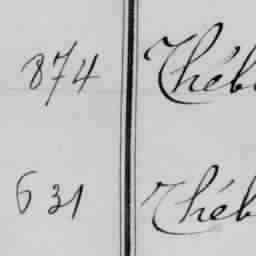 874 Théb
631 Théb